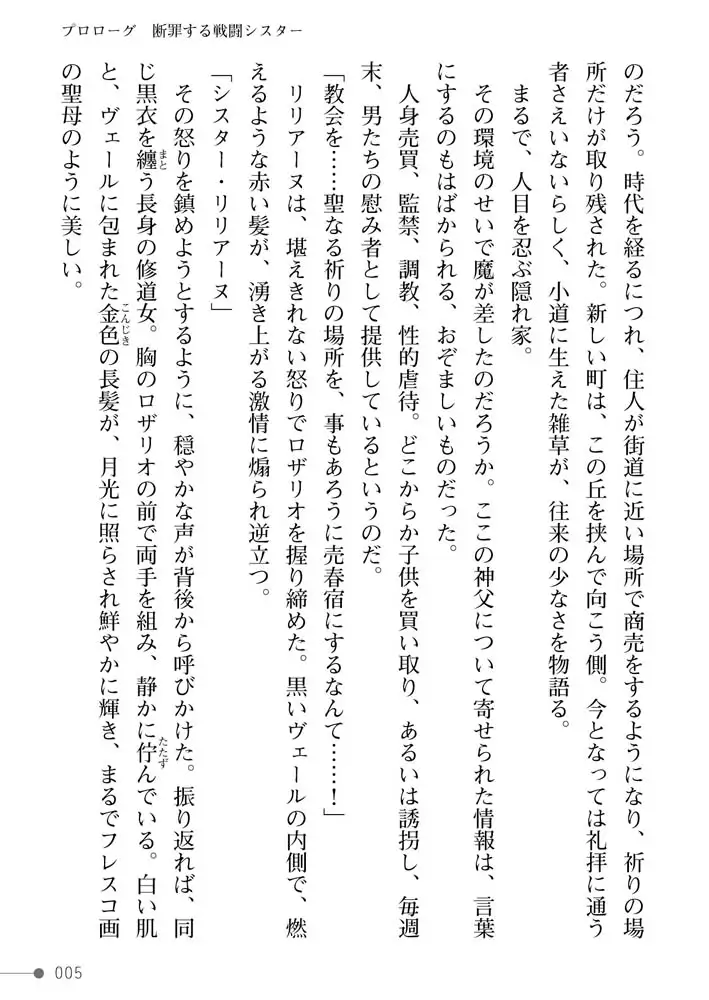 プロローグ　断罪する戦闘シスター
のだろう。時代を経るにつれ、住人が街道に近い場所で商売をするようになり、祈りの場
所だけが取り残された。新しい町は、この丘を挟んで向こう側。今となっては礼拝に通う
者さえいないらしく、小道に生えた雑草が、往来の少なさを物語る。
　まるで、人目を忍ぶ隠れ家。
　その環境のせいで魔が差したのだろうか。ここの神父について寄せられた情報は、言葉
にするのもはばかられる、おぞましいものだった。
　人身売買、監禁、調教、性的虐待。どこからか子供を買い取り、あるいは誘拐し、毎週
末、男たちの慰み者として提供しているというのだ。
「教会を……聖なる祈りの場所を、事もあろうに売春宿にするなんて……！」
　リリアーヌは、堪えきれない怒りでロザリオを握り締めた。黒いヴェールの内側で、燃
えるような赤い髪が、湧き上がる激情に煽られ逆立つ。
「シスター・リリアーヌ」
　その怒りを鎮めようとするように、穏やかな声が背後から呼びかけた。振り返れば、同
じ黒衣を纏まとう長身の修道女。胸のロザリオの前で両手を組み、静かに佇たたずんでいる。白い肌
と、ヴェールに包まれた金色こんじきの長髪が、月光に照らされ鮮やかに輝き、まるでフレスコ画
の聖母のように美しい。
005